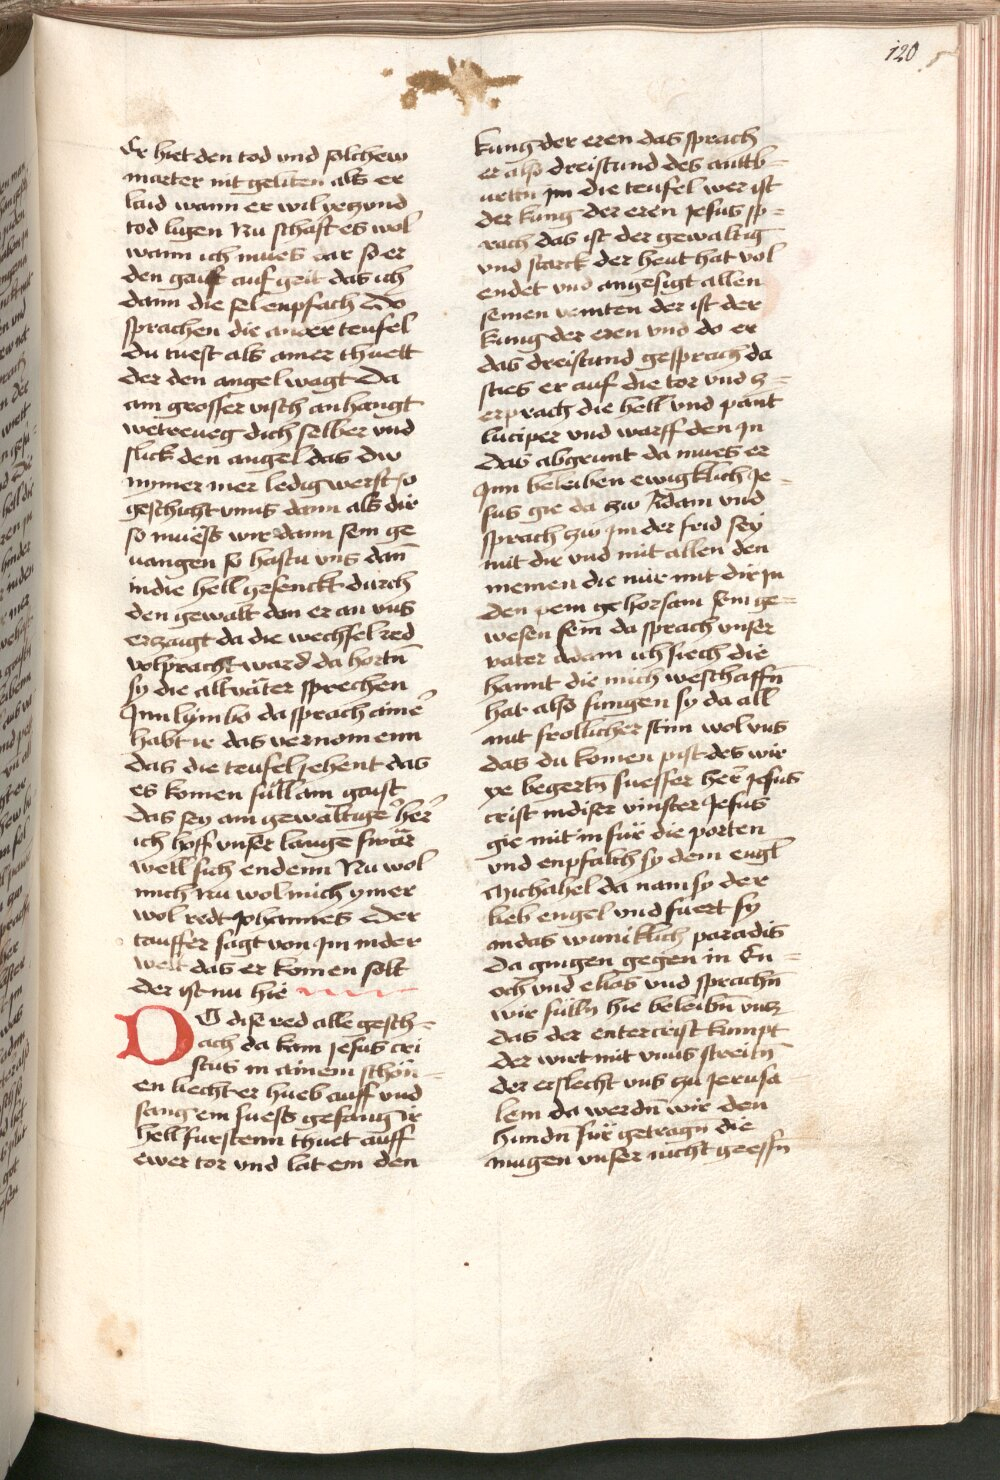 120
Er hiet den tod vnd solchew
marter nit geliten als er
laid wann er wil yeczund
tod ligen Nu schafft es wol
wann ich mues dar so er
den gaist auf geit das ich
dann die sel enpfach Do
sprachen die ander teufel
Du tuest als ainer thuett
der den angel wagt Da
ain grosser visch anhangt
wetreueg dich selber vnd
slick den angel das dw
nymer mer ledig werst so
geschicht vnns dann als dir
so muess wir dann sein ge
uangen so hastu vns dan̄
in die hell gesenckt durch
den gewalt den er an vns
erzaigt da die wechsel red
volpracht ward da hortn̄
sy die altväter sprechen
Inn lymbo da sprach aine
habt ir das vernomenn
das die teufel jehent das
es komen süll ain gaist
Das sey ain gewaltige her
ich hoff vnser lange swär
well sich endenn Nu wol
mich Nu wol mich ymer
wol redt Johannes Der
tauffer sagt von Im inder
welt das er komen solt
der ist nu hie
DO dise red alle gesch=
ach da kam Jesus cri
stus in ainem schön=
en liecht er hueb auff vnd
sang ein suess gesang ir
hell furstenn thuet auff
ewer tor vnd lat ein den
kung der eren das sprach
er also dreistund des anttb=
uettn̄ Im die teufel wer ist
der kung der eren Jesus sp=
rach das ist der gewaltig
vnd starck der heut hat vol
endet vnd angesigt allen
seinen veinten der ist der
kung der eren vnd do er
das dreistund gesprach da
sties er auf die tor vnd z=
erprach die hell vnd pant
luciper vnd warff den In
Das abgrunt da mues er
Inn beleiben ewigklich Je=
sus gie da zw Adam vnd
sprach zw Im der frid sey
mit dir vnd mit allen den
meinen die nür mit dir In
den pein gehorsam sein ge=
wesen sein da sprach vnser
vater Adam ich siech die
hannt die mich weschaffn̄
hat also sungen sy da all
mit frolicher stim wol vns
das du komen pist des wir
ye begertn̄ suesser her Jesus
crist in diser vinster Jesus
gie mit in für die porten
vnd enpfalch sy dem engl
Michahel da nam sy der
lieb engel vnd fuert sy
in das wuniklich paradis
Da gingen gegen in En=
och vnd elias vnd sprachn̄
wir sülln̄ hie beleibn̄ vncz
das der entercrist kumpt
der wirt mit vnns streitn̄
der erslecht vns zu Jerusa=
lem da werdn̄ wir den
hundn̄ für getragn̄ die
mugen vnser nicht geessn̄